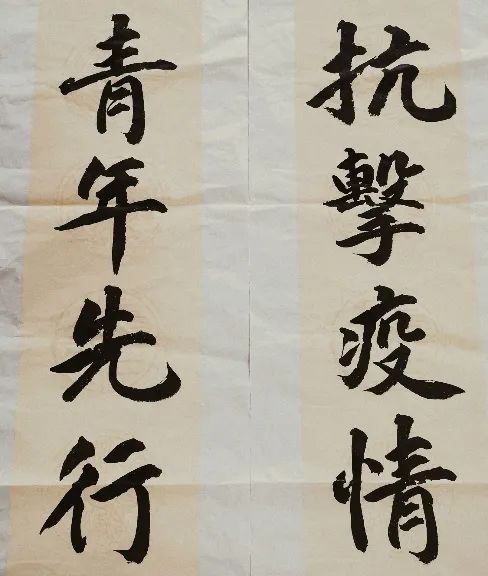 抗擊疫情
青年先行